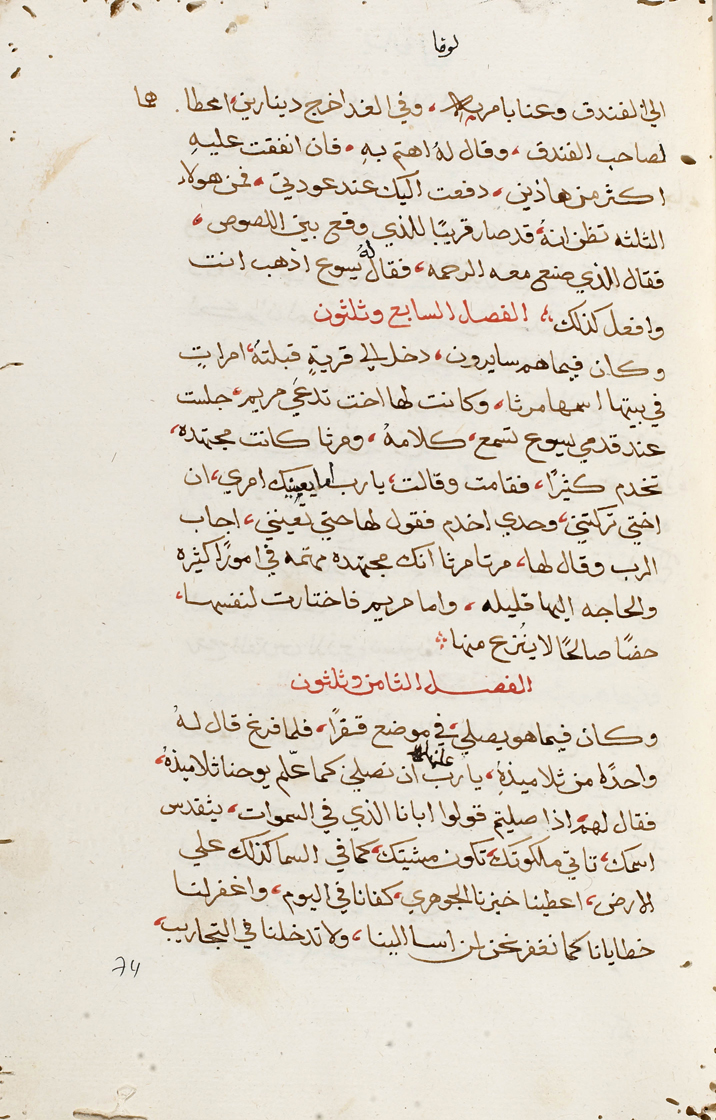 لوقا
الي الفندق وعنا بامره، وفي الغد اخرج دينارين، اعطا هما
لصاحب الفندق، وقال لهُ اهتم بهِ، فان انفقت عليهِ
اكثر من هاذين، دفعت اليك عند عودتي، فمن هولاء
الثلثه تظن انهُ، قد صار قريبًا للذي وقع بين اللصوص،
فقال الذي صنع معه الرحمه، فقال لهُ يسوع اذهب انت
وافعل كذلك، الفصل السابع وثلثون
وكان فيما هم سايرون، دخل الي قريةٍ قبلتهُ، امراتٍ
في بيتها اسمها مرثا، وكانت لها اخت تدعَي مريم، جلست
عند قدمي يسوع تسمع، كلامهُ، ومرثا كانت مجتهده،
تخدم كثيرًا، فقامت وقالت، يارب اما يعنيك امري، ان
اختي تركتني، وحدي اخدم فقول لها حتي تعينني، اجاب
الرب وقال لها، مرتا مرثا انك مجتهده مهتمه في امورًا كثيره
والحاجه اليها قليله، واما مريم فاختارت لنفسها،
حضًا صالحًا لا ينُزع منها
الفصل الثامن وثلثون
وكان فيما هو يصلي، في موضع قفرًا، فلما فرغ قال لهُ
واحدًا من تلاميذهِ، يارب علمنا ان نصلي كما علّم يوحنا تلاميذهُ،
فقال لهم، اذا صليتم قولوا ابانا الذي في السموات، يتقدس
اسمك، تاتي ملكوتك، تكون مشيتك، كما في السما كذلك علي
الارض، اعطينا خبزنا الجوهري، كفانا في اليوم، واغفر لنا
خطايانا كما نغفر نحن لمن اسا الينا، ولا تدخلنا في التجاريب،
74